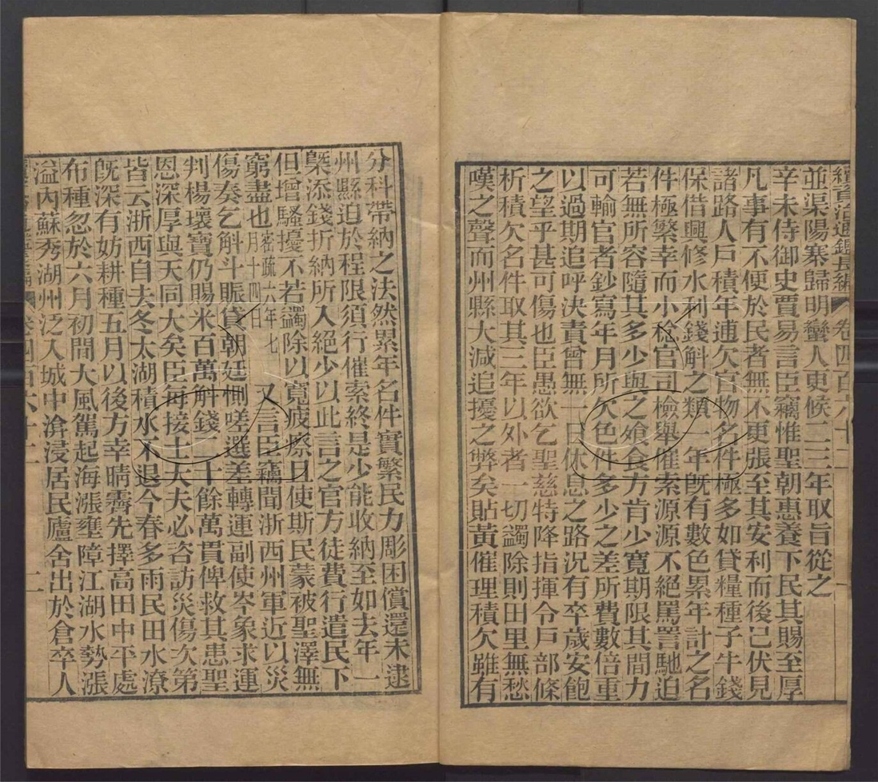 續資治通鑑長編 卷四百六十二
並渠陽寨歸明蠻人更候二三年取旨從之
辛未侍御史賈易言臣竊惟聖朝惠養下民其賜至厚
凡事有不便於民者無不更張至其安利而後已伏見
諸路人戶積年逋欠官物名件極多如貸糧種子牛錢
保借興修水利錢斛之類一年既有數色累年計之名
件極繁幸而小稔官司檢舉催索源源不絕罵詈馳迫
若無所容隨其多少與之飧食方肯少寬期限其間力
可輸官者鈔寫年月所欠色件多少之差所費數倍重
以過期追呼決責曾無一日休息之路況有卒歲安飽
之望乎甚可傷也臣愚欲乞聖慈特降指揮令戶部條
析積欠名件取其三年以外者一切蠲除則田里無愁
嘆之聲而州縣大減追擾之弊矣貼黃催理積欠雖有
分科帶納之法然累年名件實繁民力彫困償還未逮
州縣迫於程限須行催索終是少能收納至如去年一
槩添錢折納所入絕少以此言之官方徒費行遣民下
但增騷擾不若蠲除以寬疲瘵且使斯民蒙被聖澤無
窮盡也密疏六年七月十四日又言臣竊聞浙西州軍近以災
傷奏乞斛斗賑貸朝廷惻嗟選差轉運副使岑象求運
判楊瓌寶仍賜米百萬斛錢二十餘萬貫俾救其患聖
恩深厚與天同大矣臣每接士大夫必咨訪災傷次第
皆云浙西自去冬太湖積水不退今春多雨民田水潦
既深有妨耕種五月以後方幸晴霽先擇高田中平處
布種忽於六月初間大風駕起海漲壅障江湖水勢漲
溢內蘇秀湖州泛入城中渰浸居民廬舍出於倉卒人
卷四百六十二 二